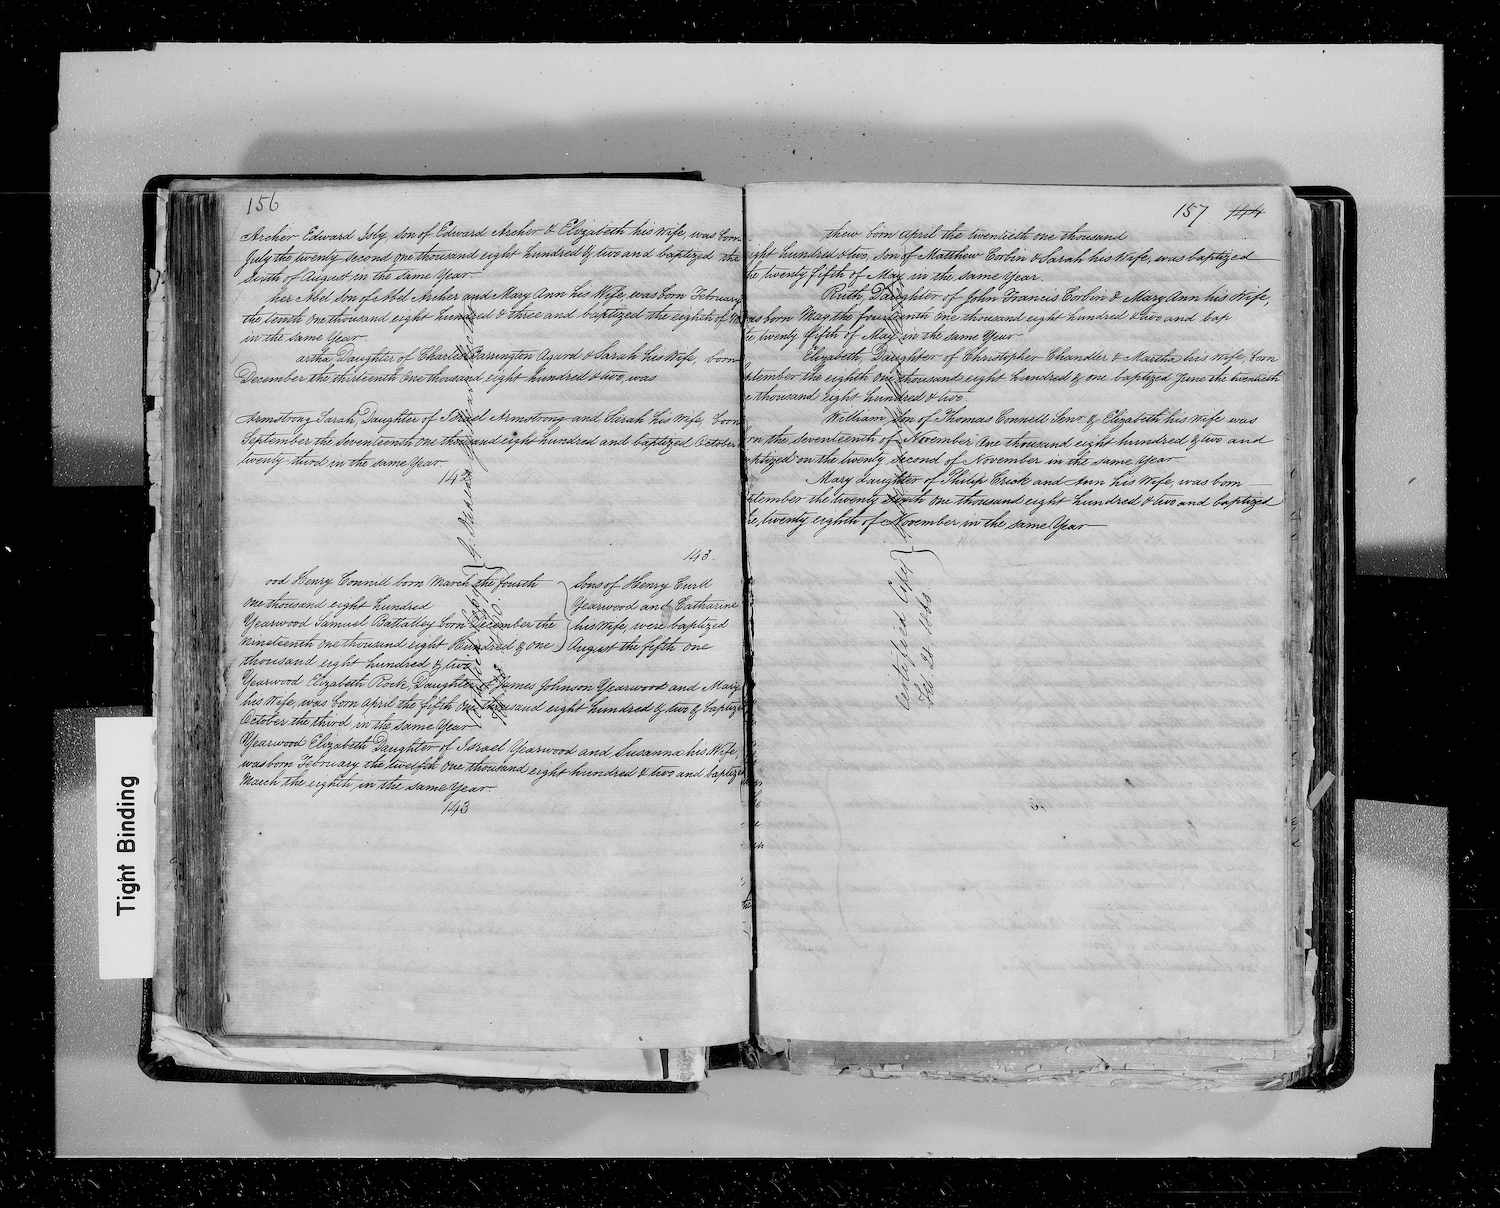 156
Archer Edward Isly, son of Edward Archer & Elizabeth his Wife, was born
July the twenty second one thousand eight hundred & two and baptized the
sixth of August in the same Year
her Abel son of Abel Archer and Mary Ann his Wife, was born February
the tenth one thousand eight hundred & three and baptized the eighth of
in the same Year
artha, Daughter of Charles Barrington Agard & Sarah his Wife, born
December the thirteenth one thousand eight hundred & two, was
Armstrong Sarah, Daughter of Israel Armstrong and Sarah his Wife, born
September the seventeenth one thousand eight hundred and baptized October
twenty third in the same Year
142
143.
ood Henry Connill born March the fourth
one thousand eight hundred
Yearwood Samuel Battalley born December the
nineteenth one thousand eight Hundred & one
thousand eight hundred & two
Sons of Henry Curll
Yearwood and Catharine
his Wife, were baptized
August the fifth one
Yearwood Elizabeth Rock, Daughter of James Johnson Yearwood and Mary
his Wife, was born April the fifth one thousand eight hundred & two & baptize
October the third in the same Year
Yearwood Elizabeth Daughter of Israel Yearwood and Susanna his Wife,
was born February the twelfth one thousand eight hundred & two and baptized
March the eighth in the same Year.
143
157 144
thew born April the twentieth one thousand
ight hundred & two, Son of Matthew Corbin & Sarah his Wife, was baptized
he twenty fifth of May in the same Year.
Ruth, Daughter of John Francis Corbin & Mary Ann his Wife,
as born May the fourteenth one thousand eight hundred & two and bap
te twenty fifth of May in the same Year
Elizabeth, Daughter of Christopher Chandler & Martha his Wife, born
ptember the eighth one thousand eight hundred & one baptized June the twentieth
e thousand eight hundred & two.
William, son of Thomas Connell Senr & Elizabeth his Wife was
rn the seventeenth of November one thousand eight hundred & two and
ptized on the twenty second of November in the same Year
Mary daughter of Philip Crick and Ann his Wife, was born
ptember the twenty tenth one thousand eight hundred & two and baptized
he, twenty eighth of November in the same Year
Certified Copy
Tight Binding